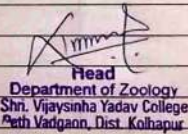 Head
Department of Zoology
Shri. Vijaysinha Yadav College
Peth Vadgaon, Dist. Kolhapur